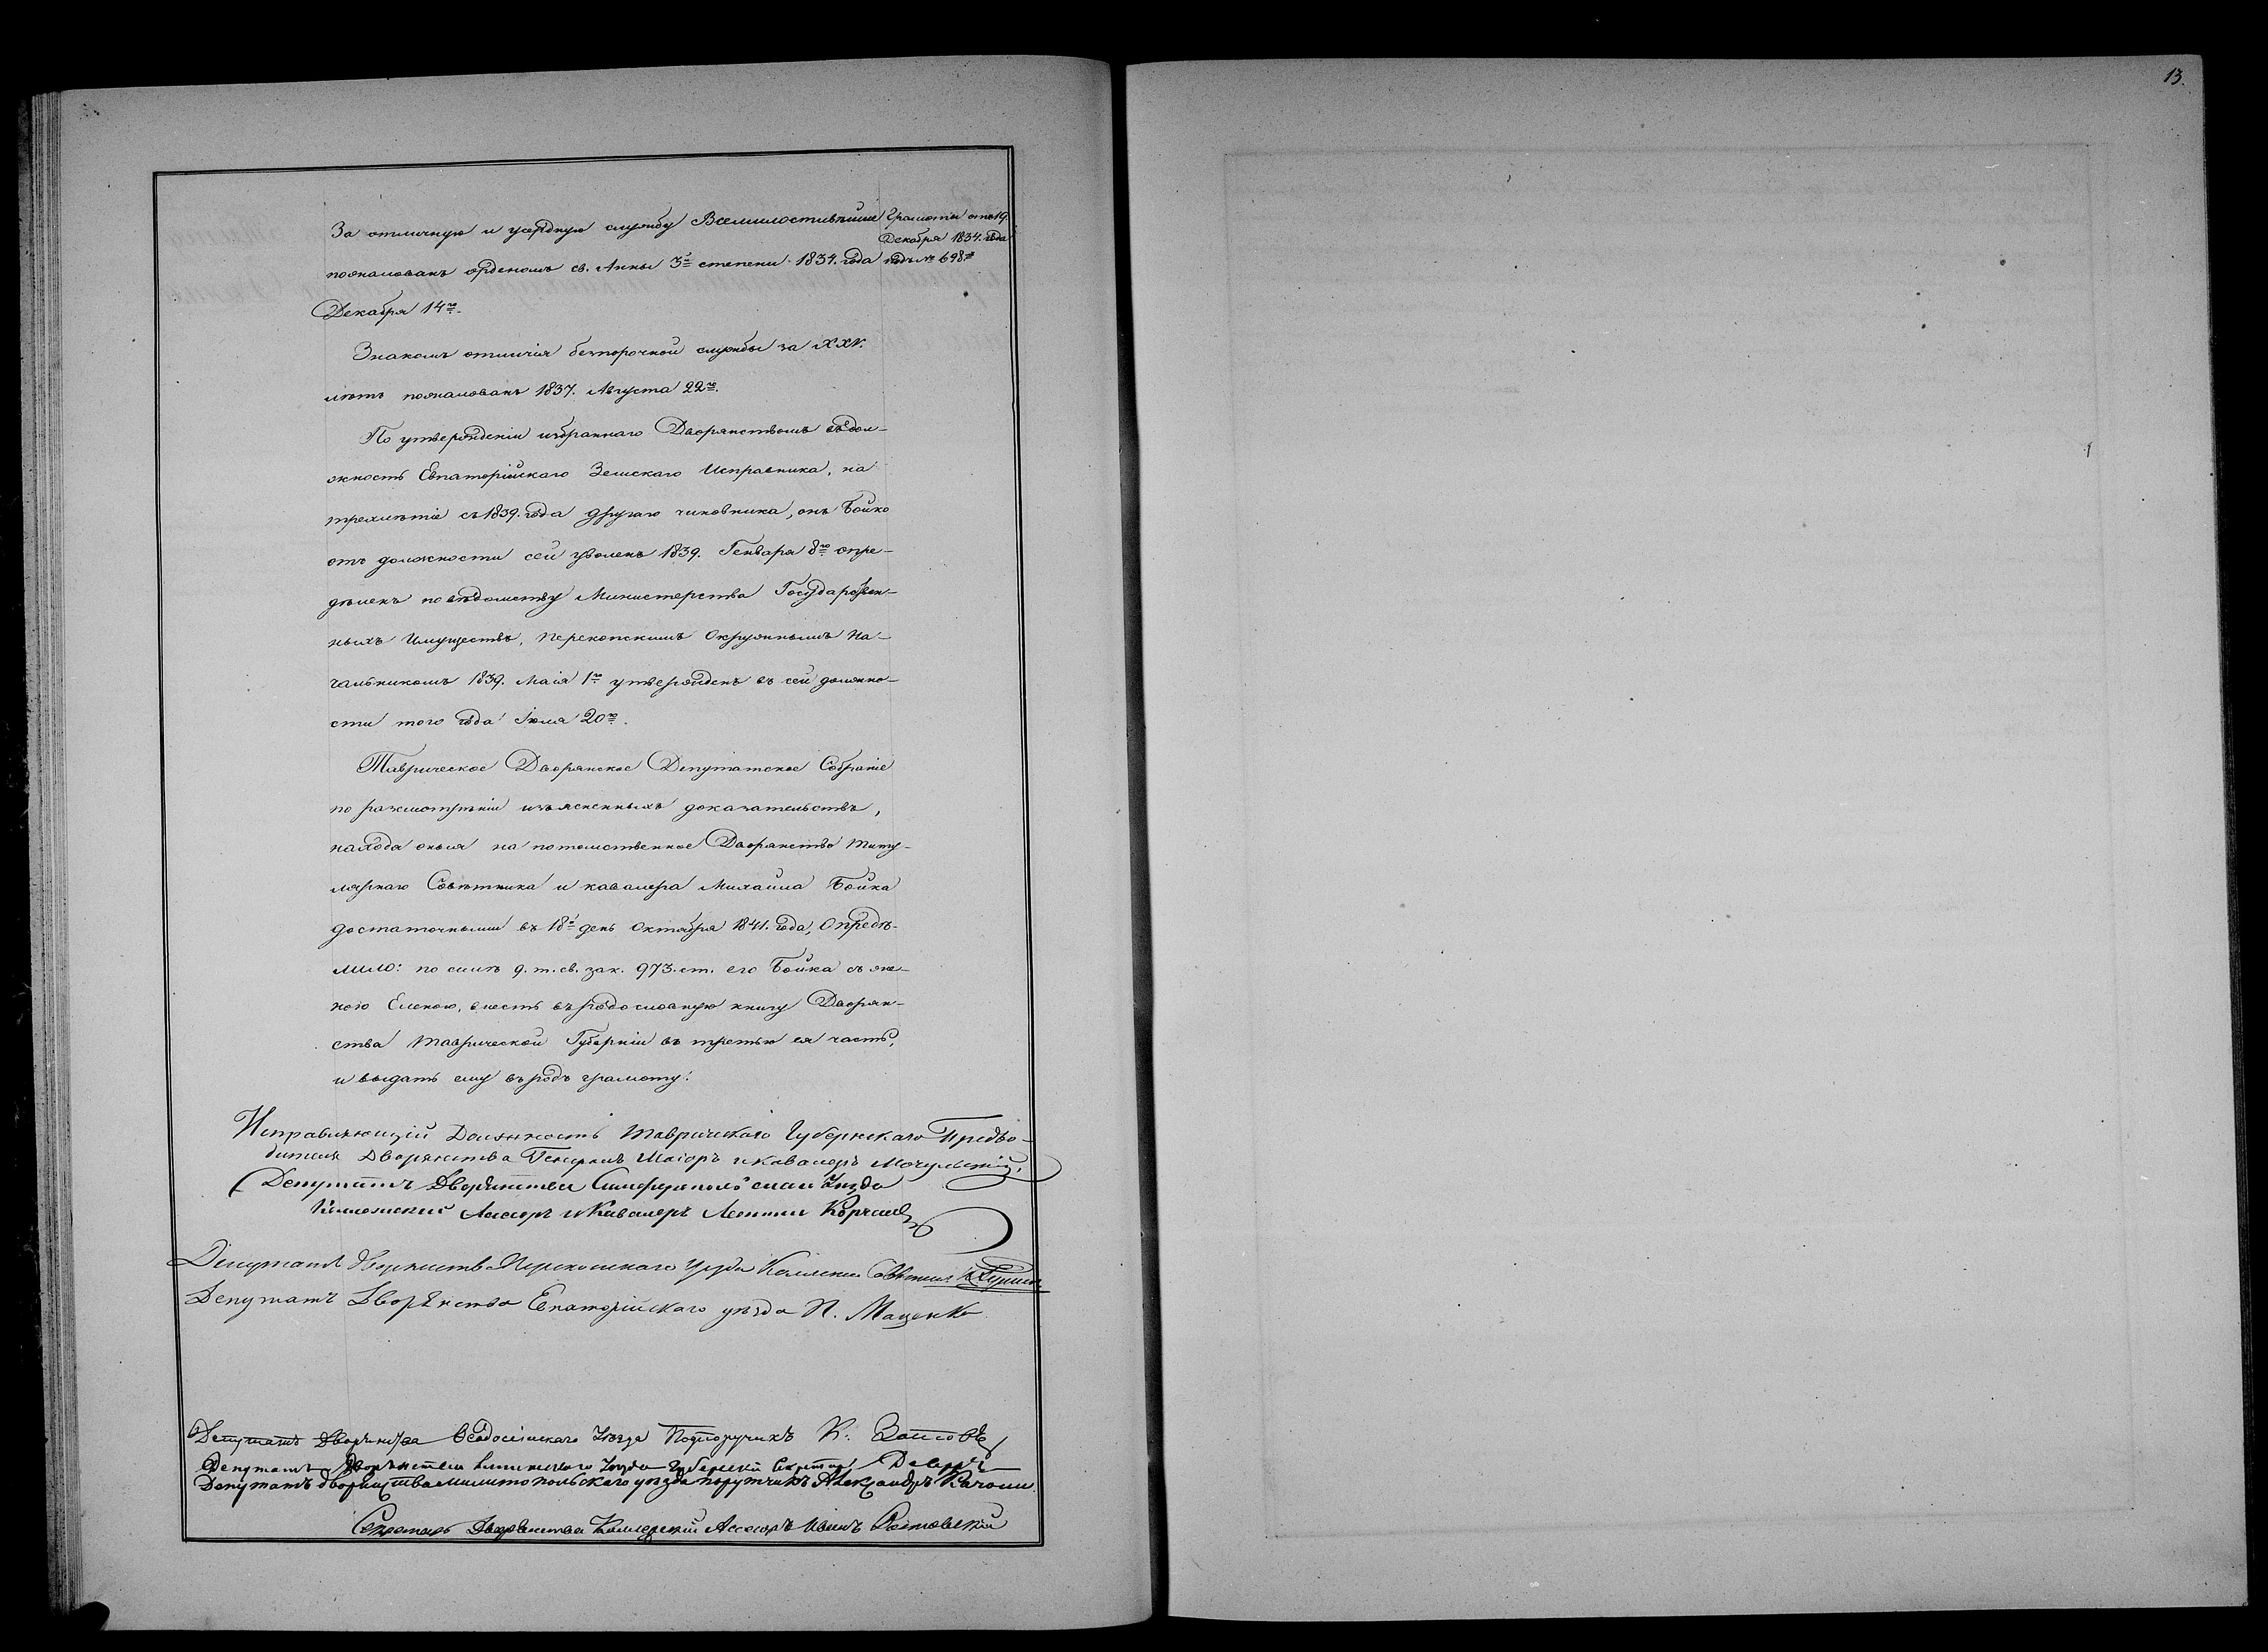 13.
За отличную и усердную службу Всемилостивѣйше
пожалованъ орденомъ св. Анны 3й степени 1834. года
Декабря 14го.
Грамоты отъ 19.
Декабря 1834. года
подъ № 698м
Знакомъ отличія безпорочной службы за XXV.
лѣтъ пожалованъ 1837. Августа 22го.
По утвержденіи избраннаго Дворянствомъ въ дол-
жность Евпаторійскаго Земскаго Исправника, на
трехлѣтіе съ 1839. года другаго чиновника, онъ Бойко
отъ должности сей уволенъ 1839. Генваря 8го опре-
дѣленъ по вѣдомству Министерства Государствен-
ныхъ Имуществъ, Перекопскимъ Окружнымъ На-
чальникомъ 1839. Маія 1го утвержденъ въ сей должно-
сти того года Іюля 20го.
Таврическое Дворянское Депутатское Собраніе
по разсмотрѣніи изъясненныхъ доказательствъ,
находя оныя на потомственное Дворянство Титу-
лярнаго Совѣтника и кавалера Михаила Бойка
достаточными въ 18й день Октября 1841. года, Опредѣ-
лило: по силѣ 9. т. св. зак. 973. ст. его Бойка съ же-
ною Еленою, внесть въ родословную книгу Дворян-
ства Таврической Губерніи въ третью ея часть,
и выдать ему въ родъ грамоту.
Исправляющій Должность Таврическаго Губернскаго Предво-
дителя Дворянства Генералъ Маіоръ и Кавалеръ Мочульскій.
Депутатъ Дворянства Симферопольскаго Уѣзда
Колежский Асесоръ и Кавалеръ Леонтий
Депутатъ Дворянства Перекопскаго Уѣзда Колежский Совѣтникъ
Депутатъ Дворянства Евпаторійскаго уѣзда П. Маценко
Депутатъ Дворянства Ѳеодосійскаго Уѣзда Подпоручикъ К.
Депутатъ Дворянства Уѣзда Губернский Секретарь
Депутатъ дворянства Мелитопольскаго уѣзда порутчикъ Александръ Качони
Секретарь Дворянства Коллежскій Ассесоръ Иванъ